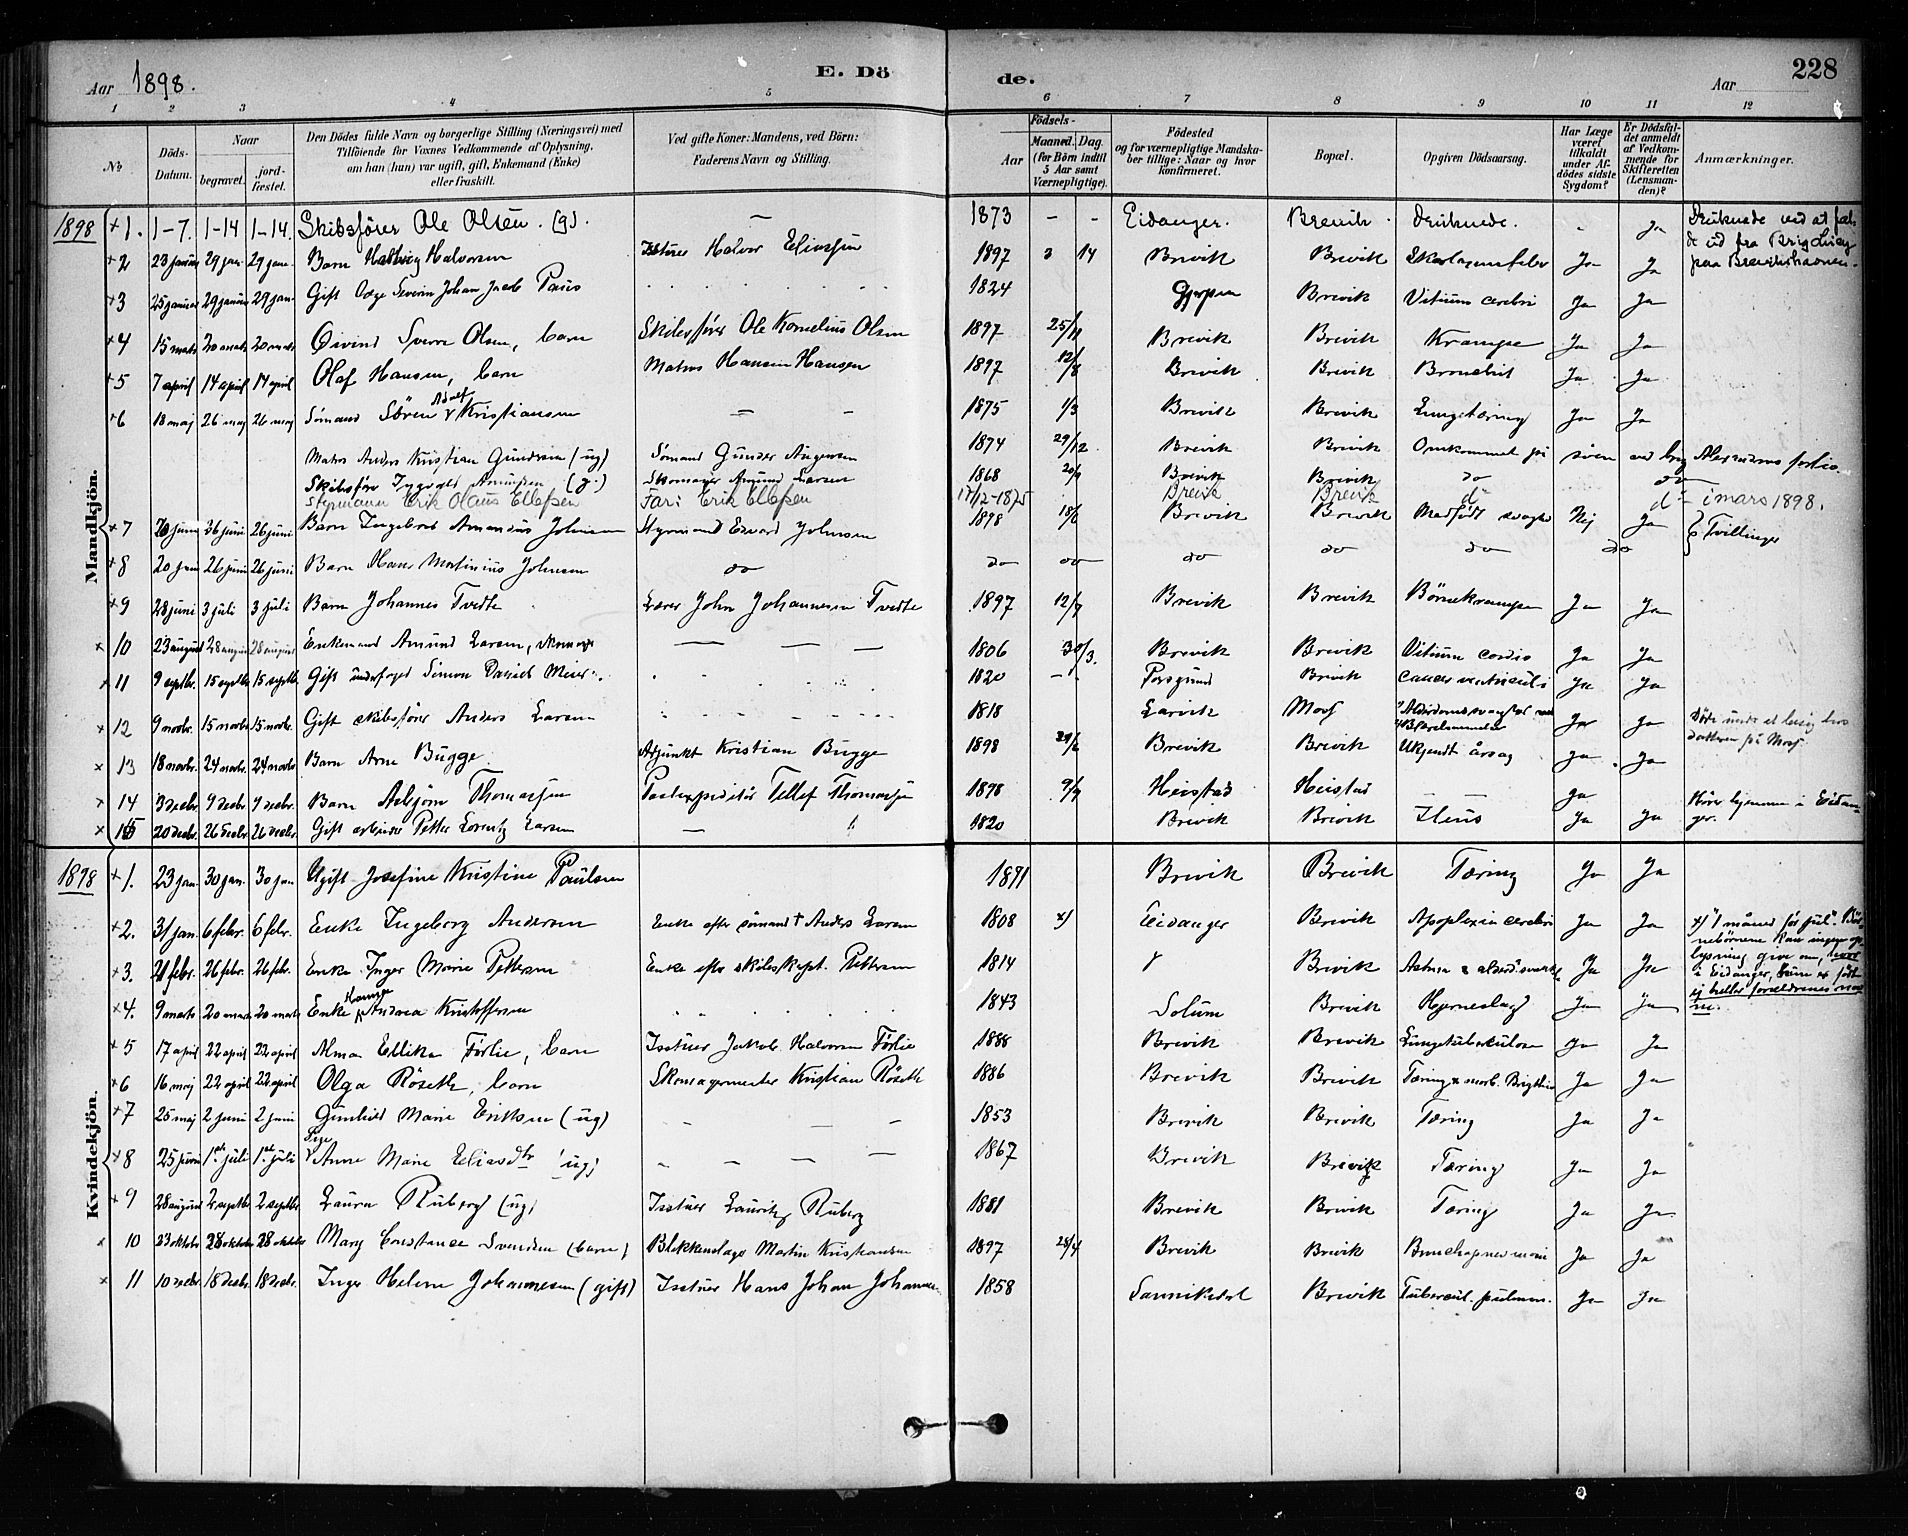 Aar 1898. E. Dö de. Aar 228
1 2 3 4 5 6 7 8 9 10 11 12
No Döds-Datum. Naar begravet. jord-fæstet. Den Dödes fulde Navn og borgerlige Stilling (Næringsvei) med Tilföiende for Voxnes Vedkommende af Oplysning, om han (hun) var ugift, gift, Enkemand (Enke) eller fraskilt. Ved gifte Koner: Mandens, ved Börn: Faderens Navn og Stilling. Födsels- Aar Maaned. Dag. (for Börn indtil 5 Aar samt Værnepligtige). Födested og for værnepligtige Mandska-ber tillige: Naar og hvor konfirmeret. Bopæl. Opgiven Dödsaarsag. Har Læge været tilkaldt under Af-dödes sidste Sygdom? Er Dödsfal-det anmeldt af Vedkom-mende for Skifteretten (Lensman-den)? Anmærkninger.
Mandkjön.
1898 +1. 1-7. 1-14 1-14. Skibsförer Ole Olsen. (g). — 1873 - - Eidanger. Brevik. druknede. - Ja Druknede ved at fal-de ud fra Brig paa Brevikshavnen.
+2 23 januar 29 jan. 29 jan. Barn Halvorsen Halvor Eliassen 1897 3 14 Brevik Brevik Skarlagensfeber Ja Ja
+3 25 januar 29 januar 29 jan. Gift Severin Johan Jacob Paus 1824 Gjerpen Brevik Vitium cerebri Ja Ja
+4 15 marts 20 marts 20 marts Öivind Sverre Olsen, barn Skibsförer Ole Kornelius Olsen 1897 25/11 Brevik Brevik Krampe Ja Ja
+5 7 april 14 april 14 april Olaf Hansen, barn Matros Hansen 1897 12/8 Brevik Brevik Ja Ja
+6 18 maj 26 maj 26 maj Sömand Sören Adolf Kristiansen — — 1875 1/3 Brevik Brevik Lungetæring Ja Ja
Matros Anders Kristian Gundersen (ug) Sömand Gunder 1874 29/12 Brevik Brevik Omkommet på söen ved brig
Skibsförer Amundsen (g.) Skomager Amund Larsen 1868 20/9 Brevik Brevik do do
Styrmann Erik Olaus Ellefsen Far: Erik Ellefsen 17/12-1875 Brevik Brevik do do i mars 1898.
+7 20 juni 26 juni 26 juni Barn Ingebret Amandus Johnsen Styrmand Edvard Johnsen 1898 18/6 Brevik Brevik Medfödt svaghed Nej Ja } Tvillinger
+8 20 juni 26 juni 26 juni Barn Hans Martinius Johnsen do do do do do do do
+9 28 juni 3 juli 3 juli Barn Johannes Tvedte Lærer John Johannesen Tvedte 1897 12/7 Brevik Brevik Börnekrampe Ja Ja
x 10 23 august 28 august 28 august Enkemand Amund Larsen, skomager — — — 1806 30/3. Brevik Brevik Vitium cordis Ja Ja
x 11 9 septbr. 15 septbr. 15 septbr. Gift underfoged Simon Daniel Meier. 1820 — Porsgrund Brevik Cancer ventriculi Ja Ja
x 12 9 novbr. 15 novbr. 15 novbr. Gift skibsförer Anders Larsen 1818 Larvik Ja Ja Döde under et besög hos datteren på
x 13 18 novbr. 24 novbr. 24 novbr. Barn Arne Bugge. Adjunkt Kristian Bugge 1898 Brevik Brevik Ukjendt årsag Ja Ja
x 14 3 decbr. 9 decbr. 9 decbr. Barn Asbjörn Thomassen Postexpeditör Tellef Thomassen 1898 9/9 Heistad Heistad — — Ja Hörer hjemme i Eidan-ger.
x 15 20 decbr. 26 decbr. 26 decbr. Gift arbeider Petter Lorentz Larsen — 1820 Brevik Brevik Ileus Ja Ja
Kvindekjön.
1898 +1. 23 jan. 30 jan. 30 jan Ugift Josefine Kristine Paulsen 1871 Brevik Brevik Tæring Ja Ja
+2. 31 jan. 6 febr. 6 febr. Enke Ingeborg Andersen Enke efter sömand † Anders Larsen 1808 x) Eidanger Brevik Apoplexia cerebri Ja Ja x) "1 måned för jul". Bör-nebörnene kan ingen op-lysning give om, hvor i Eidanger, hun er födt ej heller forældrenes nav-ne.
+3. 21 febr. 26 febr. 26 febr. Enke Inger Marie Pettersen Enke efter skibskapt. Pettersen 1814 Brevik Ja Ja
+4. 9 marts 20 marts 20 marts Enke Andrea Kristoffersen 1843 Solum Brevik Hjerneslag Ja Ja
+5 17 april 22 april 22 april Alma Ellika Förlie, barn Isstuer Jakob Halvorsen Förlie 1888 Brevik Brevik Lungetuberkulose Ja Ja
+6 16 maj 22 april 22 april Olga Röseth, barn Skomagermester Kristian Röseth 1886 Brevik Brevik Tæring & morb. Brigthii Ja Ja
+7 25 maj 2 juni 2 juni Gunhild Marie Eriksen (ug) — — — 1853 Brevik Brevik Tæring Ja Ja
+8 25 juni 1ste juli 1ste juli Anne Marie Eliasdtr (ug) — — — — 1867 Brevik Brevik Tæring Ja Ja
+9 28 august 2 septbr 2 septbr Laura Ruberg (ug) Isstuer Lauritz Ruberg 1881 Brevik Brevik Tæring Ja Ja
x 10 23 oktobr 28 oktobr 28 oktobr Mary Constance Svendsen (barn) Blikkenslager Martin Kristiansen 1897 28/4 Brevik Brevik Bronchopneumoni Ja Ja
x 11 10 decbr. 18 decbr. 18 decbr. Inger Helene Johannesen (gift) Isstuer Hans Johan Johannesen 1858 Sannikedal Brevik Tubercul. pulmon. Ja Ja